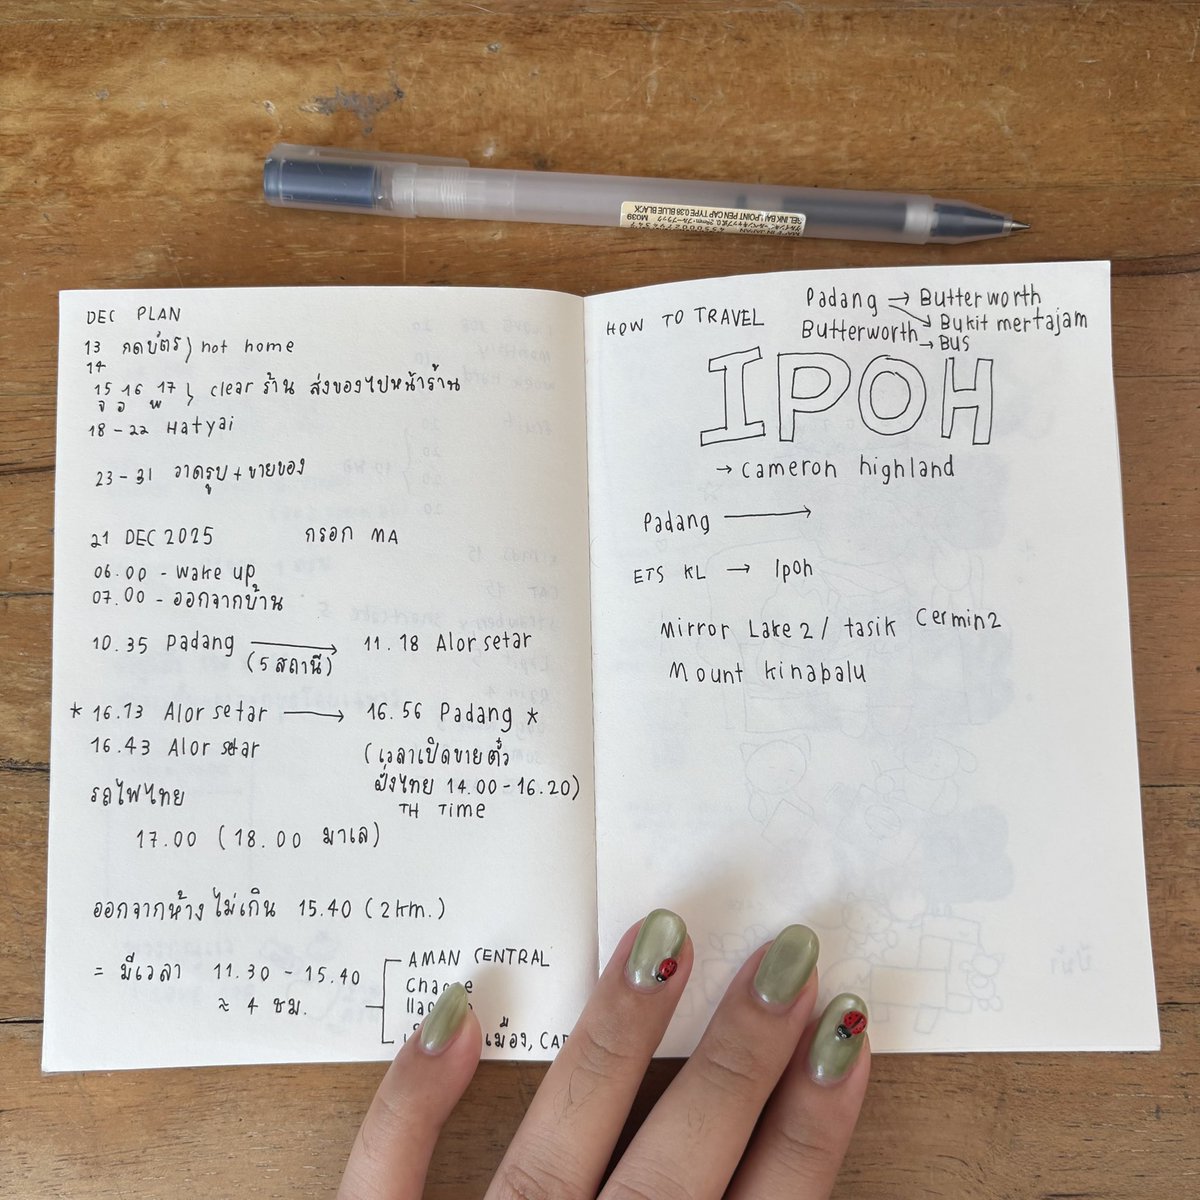 MADE IN JAPAN
4550002794347
GEL INK BALLPOINT PEN CAP TYPE 0.38 BLUE BLACK
M039
DEC PLAN
13 กดบัตร } hot home
14
15 16 17 } clear ร้าน ส่งของไปหน้าร้าน
จ อ พ
18 - 22 Hatyai
23 - 31 วาดรูป + ขายของ
21 DEC 2025 กรอก MA
06.00 - wake up
07.00 - ออกจากบ้าน
10.35 Padang → 11.18 Alor setar
(5 สถานี)
* 16.13 Alor setar → 16.56 Padang *
16.43 Alor setar (เวลาเปิดขายตั๋ว
รถไฟไทย ฝั่งไทย 14.00 - 16.20)
TH Time
17.00 (18.00 มาเล)
ออกจากห้าง ไม่เกิน 15.40 (2km.)
= มีเวลา 11.30 - 15.40
≈ 4 ชม.
AMAN CENTRAL
เมือง,
HOW TO TRAVEL
Padang → Butterworth
→ Bukit mertajam
Butterworth → BUS
IPOH
→ cameron highland
Padang →
ETS KL → Ipoh
Mirror Lake 2 / tasik Cermin2
Mount kinabalu